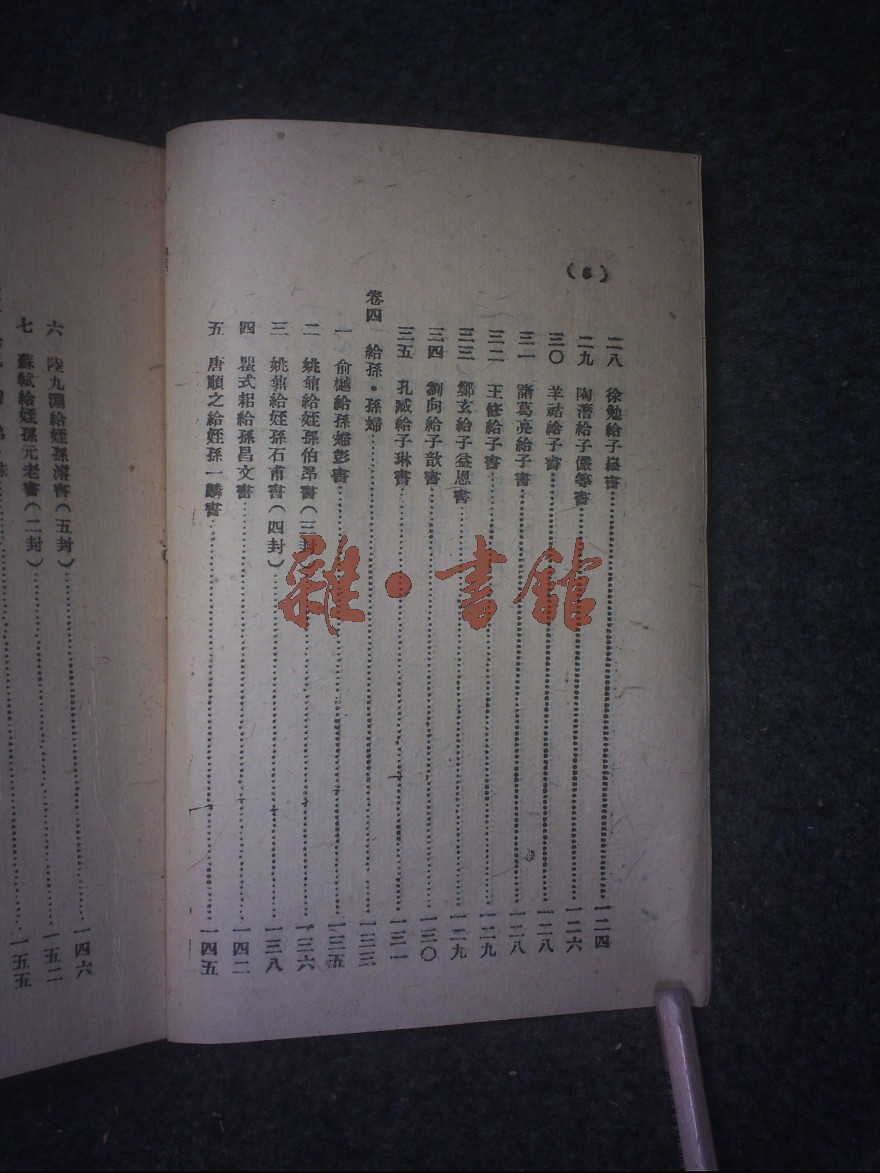 (6)
二八 徐勉給子崧書 一二四
二九 陶潛給子儼等書 一二六
三〇 羊祜給子書 一二八
三一 諸葛亮給子書 一二八
三二 王修給子書 一二九
三三 鄭玄給子益恩書 一二九
三四 劉向給子歆書 一三〇
三五 孔臧給子琳書 一三一
卷四 給孫·孫婦 一三三
一 俞樾給孫婦彭書 一三五
二 姚鼐給姪孫伯昂書(三封) 一三六
三 姚鼐給姪孫石甫書(四封) 一三八
四 瞿式耜給孫昌文書 一四二
五 唐順之給姪孫一麟書 一四五
六 陸九淵給姪孫濬書(五封) 一四六
七 蘇軾給姪孫元老書(二封) 一五二
一五五
雜·書館